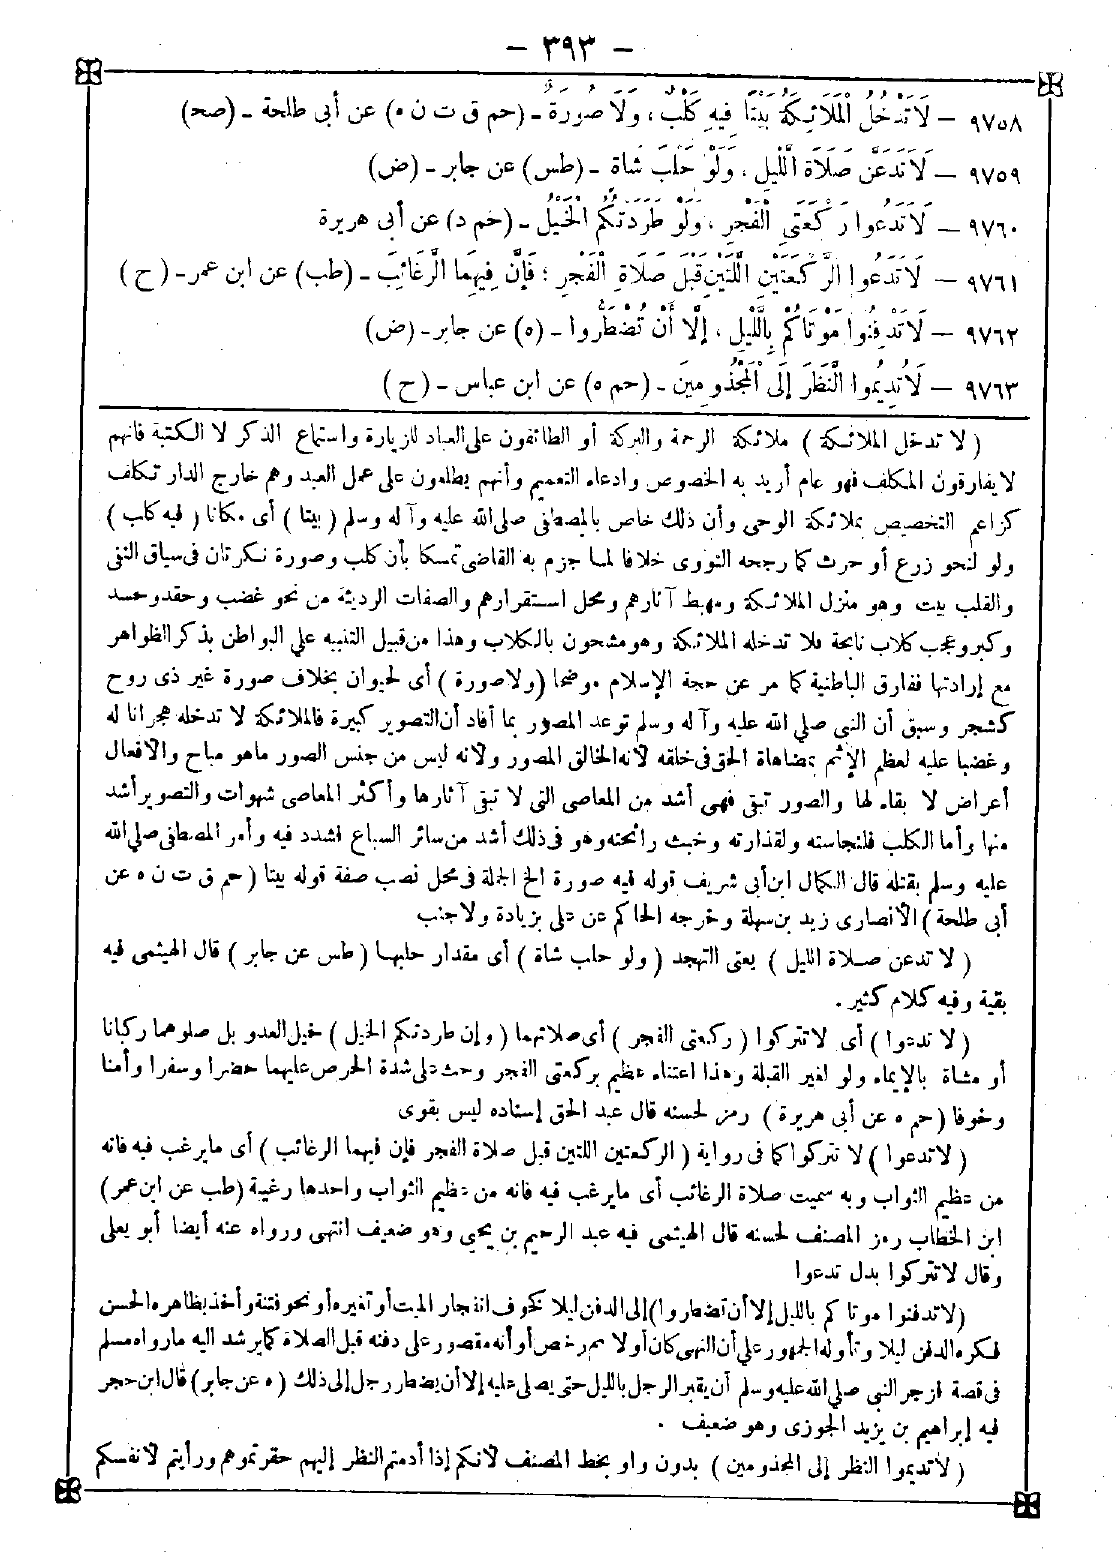 – ٣٩٣ –
٩٧٥٨ – لَا تَدْخُلُ الْمَلَائِكَةُ بَيْتًا فِيهِ كَلْبٌ ، وَلَا صُورَةٌ – (حم ق ت ن ه) عن أبى طلحة – (صح)
٩٧٥٩ – لَا تَدَعَنَّ صَلَاةَ اللَّيْلِ ، وَلَوْ حَلْبَ شَاةٍ – (طس) عن جابر – (ض)
٩٧٦٠ – لَا تَدَعُوا رَكْعَتَيِ الْفَجْرِ ، وَلَوْ طَرَدَتْكُمُ الْخَيْلُ – (حم د) عن أبى هريرة
٩٧٦١ – لَا تَدَعُوا الرَّكْعَتَيْنِ اللَّتَيْنِ قَبْلَ صَلَاةِ الْفَجْرِ ؛ فَإِنَّ فِيهِمَا الرَّغَائِبَ – (طب) عن ابن عمر – (ح)
٩٧٦٢ – لَا تَدْفِنُوا مَوْتَاكُمْ بِاللَّيْلِ ، إِلَّا أَنْ تُضْطَرُّوا – (ه) عن جابر – (ض)
٩٧٦٣ – لَا تُدِيمُوا النَّظَرَ إِلَى الْمَجْذُومِينَ – (حم ه) عن ابن عباس – (ح)
( لا تدخل الملائكة ) ملائكة الرحمة والبركة أو الطائفون على العباد للزيارة واستماع الذكر لا الكتبة فانهم
لا يفارقون المكلف فهو عام أريد به الخصوص وادعاء التعميم وأنهم يطلعون على عمل العبد وهم خارج الدار تكلف
كزاعم التخصيص بملائكة الوحى وأن ذلك خاص بالمصطفى صلى الله عليه وآله وسلم ( بيتا ) أى مكانا ( فيه كلب )
ولو لنحو زرع أو حرث كما رجحه النووى خلافا لما جزم به القاضى تمسكا بأن كلب وصورة نكرتان فى سياق النفى
والقلب بيت وهو منزل الملائكة ومهبط آثارهم ومحل استقرارهم والصفات الرديئة من نحو غضب وحقد وحسد
وكبر وعجب كلاب نابحة فلا تدخله الملائكة وهو مشحون بالكلاب وهذا من قبيل التنبيه على البواطن بذكر الظواهر
مع إرادتها ففارق الباطنية كما مر عن حجة الإسلام موضحا (ولا صورة ) أى لحيوان بخلاف صورة غير ذى روح
كشجر وسبق أن النبى صلى الله عليه وآله وسلم توعد المصور بما أفاد أن التصوير كبيرة فالملائكة لا تدخله هجرانا له
وغضبا عليه لعظم الإثم بمضاهاة الحق فى خلقه لأنه الخالق المصور ولأنه ليس من جنس الصور ماهو مباح والأفعال
أعراض لا بقاء لها والصور تبقى فهى أشد من المعاصى التى لا تبقى آثارها وأكثر المعاصى شهوات والتصوير أشد
منها وأما الكلب فلنجاسته ولقذارته وخبث رائحته وهو فى ذلك أشد من سائر السباع اشدد فيه وأمر المصطفى صلى الله
عليه وسلم بقتله قال الكمال ابن أبى شريف قوله فيه صورة الخ الجملة فى محل نصب صفة قوله بيتا ( حم ق ت ن ه عن
أبى طلحة ) الأنصارى زيد بن سهلة وخرجه الحاكم عن على بزيادة ولا جنب
( لا تدعن صلاة الليل ) يعنى التهجد ( ولو حلب شاة ) أى مقدار حلبها ( طس عن جابر ) قال الهيثمى فيه
بقية وفيه كلام كثير .
( لا تدعوا ) أى لا تتركوا ( ركعتى الفجر ) أى صلاتهما ( وإن طردتكم الخيل ) خيل العدو بل صلوهما ركبانا
أو مشاة بالإيماء ولو لغير القبلة وهذا اعتناء عظيم بركعتى الفجر وحث على شدة الحرص عليهما حضرا وسفرا وأمنا
وخوفا ( حم ه عن أبى هريرة ) رمز لحسنه قال عبد الحق إسناده ليس بقوى
( لا تدعوا ) لا تتركوا كما فى رواية ( الركعتين اللتين قبل صلاة الفجر فإن فيهما الرغائب ) أى مايرغب فيه فانه
من عظيم الثواب وبه سميت صلاة الرغائب أى مايرغب فيه فانه من عظيم الثواب واحدها رغيبة (طب عن ابن عمر)
ابن الخطاب رمز المصنف لحسنه قال الهيثمى فيه عبد الرحيم بن يحيى وهو ضعيف انتهى ورواه عنه أيضا أبو يعلى
وقال لا تتركوا بدل تدعوا
(لا تدفنوا موتاكم بالليل إلا أن تضطروا) إلى الدفن ليلا كخوف انفجار الميت أو تغيره أو نحو فتنة وأخذ بظاهره الحسن
فكره الدفن ليلا وتأوله الجمهور على أن النهى كان أولا ثم رخص أو أنه مقصور على دفنه قبل الصلاة كما يرشد اليه مارواه مسلم
فى قصة زجر النبى صلى الله عليه وسلم أن يقبر الرجل بالليل حتى يصلى عليه إلا أن يضطر رجل إلى ذلك ( ه عن جابر ) قال ابن حجر
فيه إبراهيم بن يزيد الجوزى وهو ضعيف .
( لا تديموا النظر إلى المجذومين ) بدون واو بخط المصنف لأنكم إذا أدمتم النظر إليهم حقرتموهم ورأيتم لأنفسكم